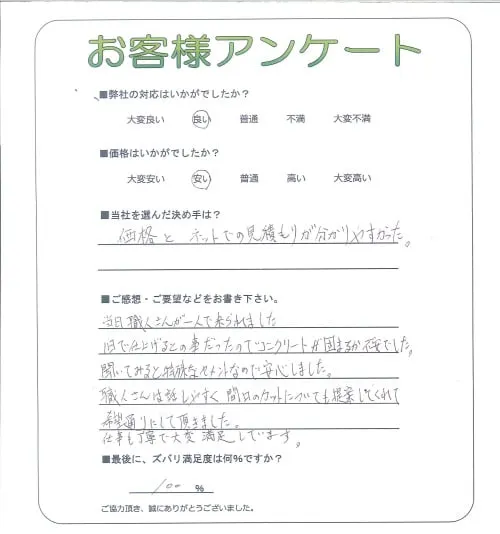 お客様アンケート
■弊社の対応はいかがでしたか？
大変良い 良い 普通 不満 大変不満
■価格はいかがでしたか？
大変安い 安い 普通 高い 大変高い
■当社を選んだ決め手は？
価格と ネットでの見積もりが分かりやすかった。
■ご感想・ご要望などをお書き下さい。
当日職人さんが一人で来られました
1日で仕上げるとの事だったのでコンクリートが固まるか不安でした。
聞いてみると特殊なセメントなので安心しました。
職人さんは話しやすく 間口のカットについても提案してくれて
希望通りにして頂きました。
仕事も丁寧で大変満足しています。
■最後に、ズバリ満足度は何％ですか？
100 ％
ご協力頂き、誠にありがとうございました。